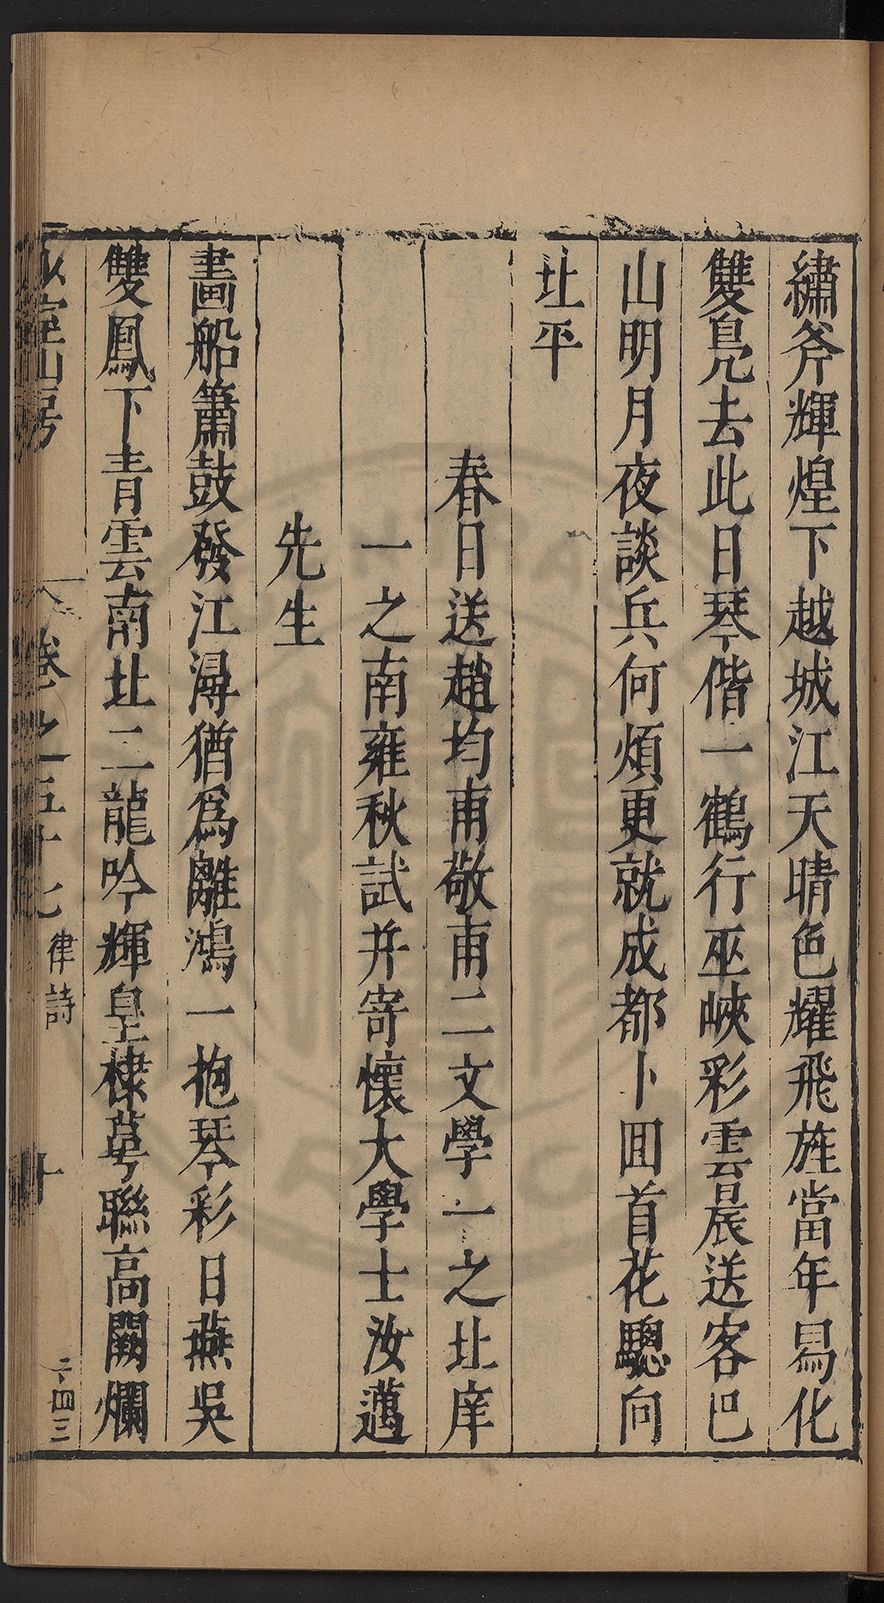 繡斧輝煌下越城江天晴色耀飛旌當年舃化
雙鳧去此日琴偕一鶴行巫峽彩雲晨送客巴
山明月夜談兵何煩更就成都卜囬首花驄向
北平
春日送趙均甫敬甫二文學一之北庠
一之南雍秋試并寄懷大學士汝邁
先生
畫船簫鼓發江潯猶爲離鴻一抱琴彩日燕吳
雙鳳下青雲南北二龍吟輝皇棣萼聯高闕爛
少室山房
卷之五十七
律詩
十
二四三